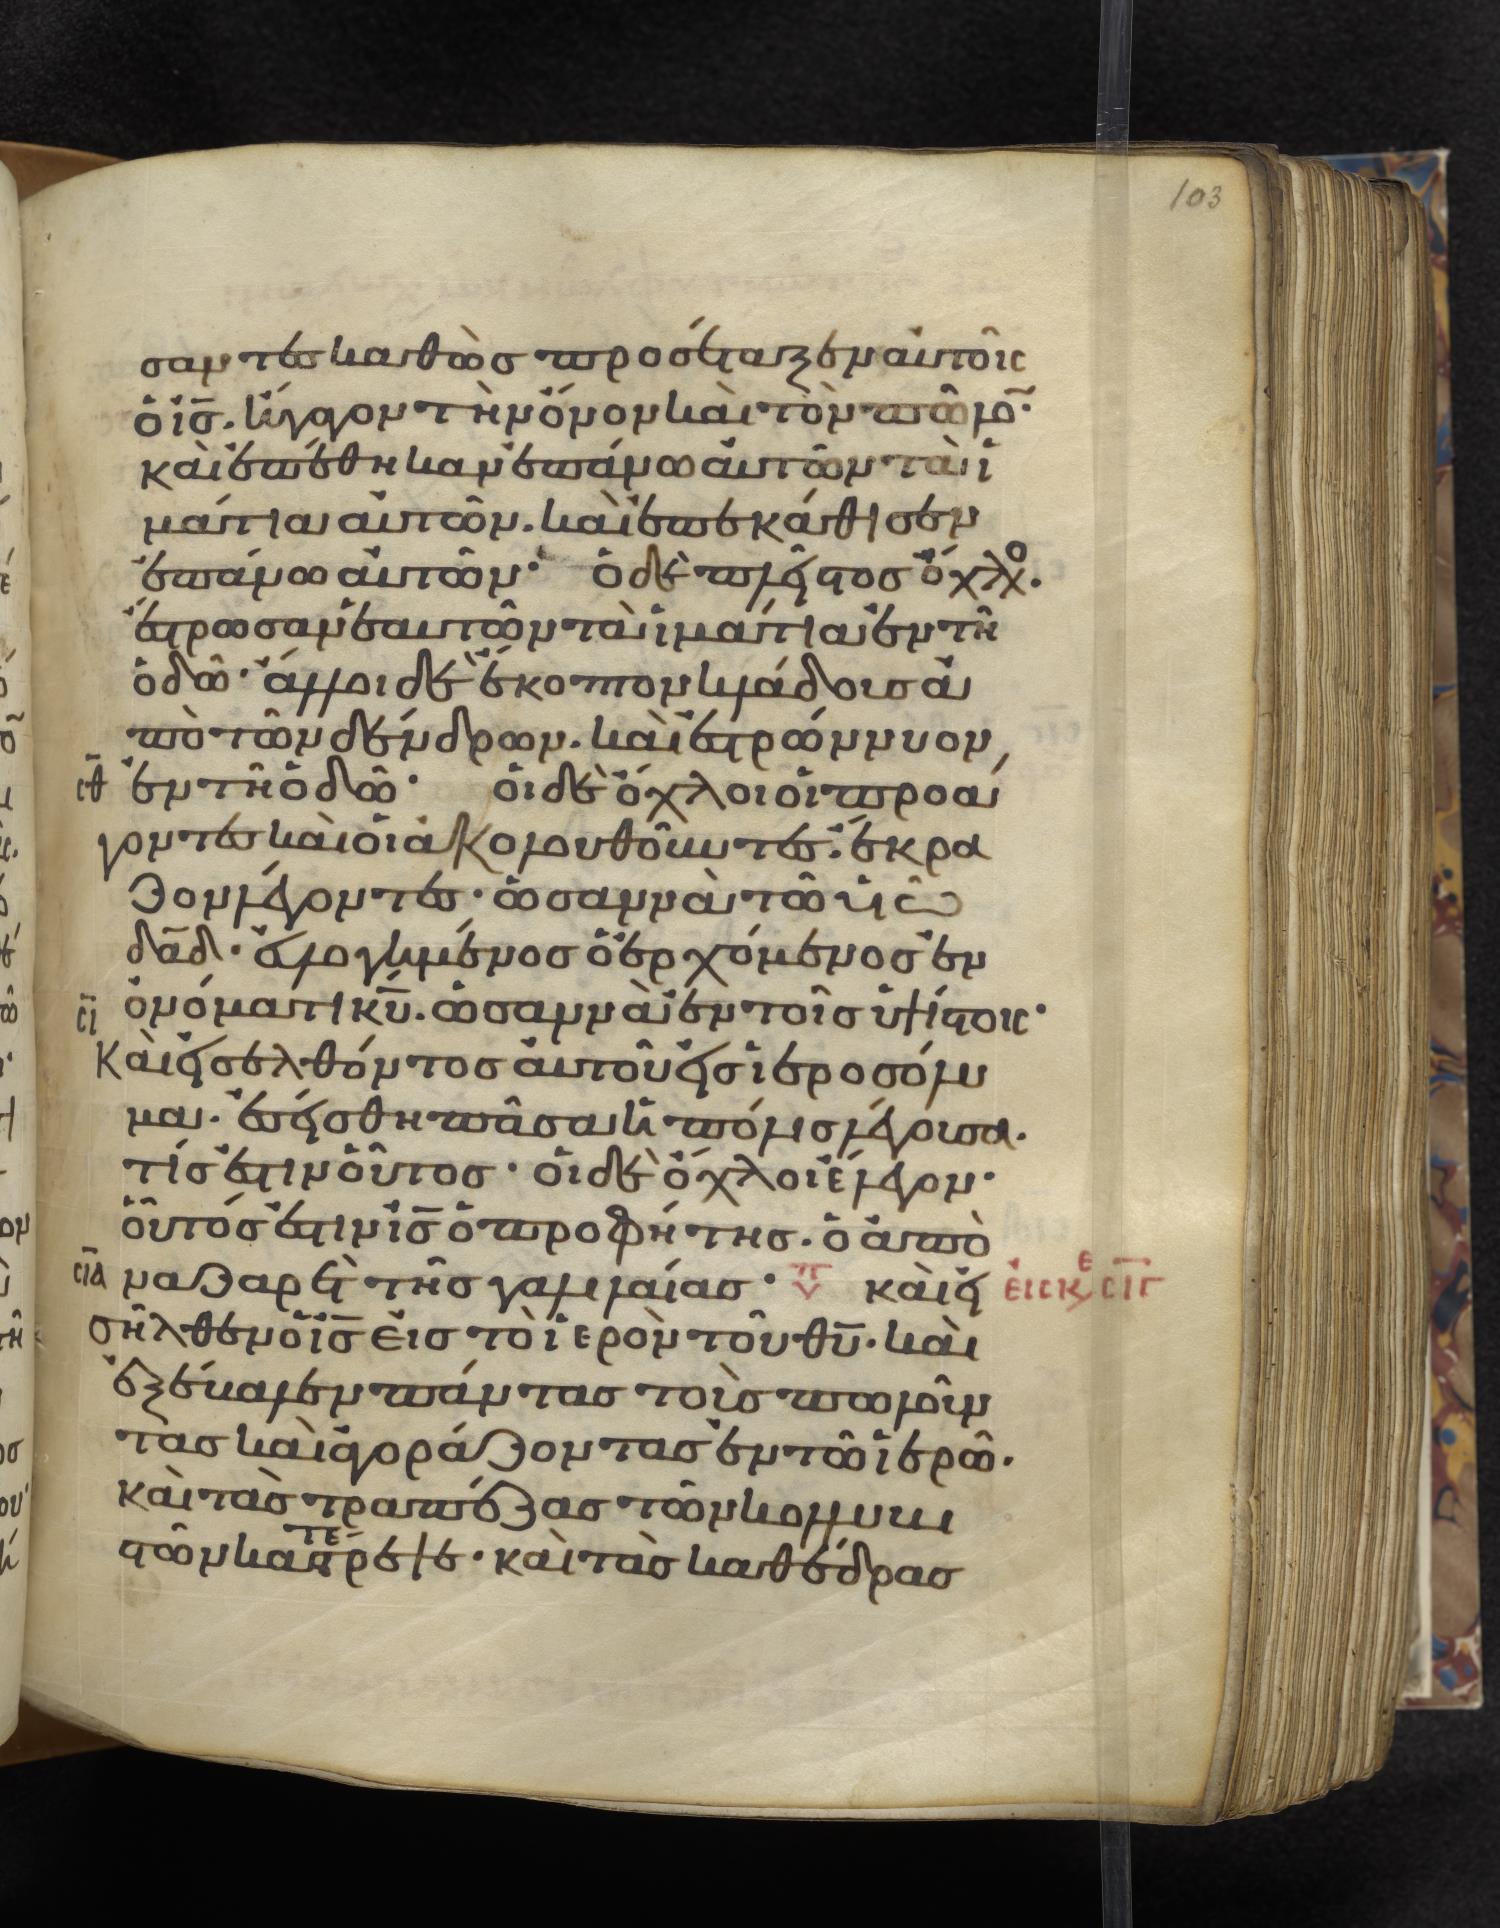 103
σαντες καθὼς προσέταξεν αὐτοῖς
ὁ ις̅. ἤγαγον τὴν ὄνον καὶ τὸν πῶλο̅·
καὶ ἐπέθηκαν ἐπάνω αὐτῶν τὰ ἱ
μάτια αὐτῶν. καὶ ἐπεκάθισεν
ἐπάνω αὐτῶν· ὁ δὲ πλεῖστος ὄχλο.
ἔστρωσαν ἑαυτῶν τὰ ἱμάτια ἐν τῆ
ὁδῶ· ἄλλοι δὲ ἔκοπτον κλάδους ἀ
πὸ τῶν δένδρων. καὶ ἐστρώννυον,
σθ ἐν τῆ ὁδῶ· οἱ δὲ ὄχλοι οἱ προά
γοντες καὶ οἱ ἀκολουθοῦντες. ἔκρα
ζον λέγοντες· ὡσαννὰ τῶ υἱῶ
δα̅δ· εὐλογημένος ὁ ἐρχόμενος ἐν
σι ὀνόματι κυ̅. ὡσαννὰ ἐν τοῖς ὑψίστοις·
Καὶ εἰσελθόντος αὐτοῦ εἰς ἱεροσόλυ
μα. ἐσείσθη πᾶσα ἡ πόλις λέγουσα.
τίς ἐστιν οὗτος· οἱ δὲ ὄχλοι ἔλεγον·
οὗτός ἐστιν ις̅ ὁ προφήτης. ὁ ἀπὸ
σια ναζαρὲτ τῆς γαλιλαίας· καὶ εἰ
σῆλθεν ὁ ις̅ εἰς τὸ ἱερὸν τοῦ θυ̅. καὶ
ἐξέβαλεν πάντας τοὺς πωλοῦν
τας καὶ ἀγοράζοντας ἐν τῶ ἱερῶ.
καὶ τὰς τραπέζας τῶν κολλυβι
στῶν κατέστρεψε· καὶ τὰς καθέδρας